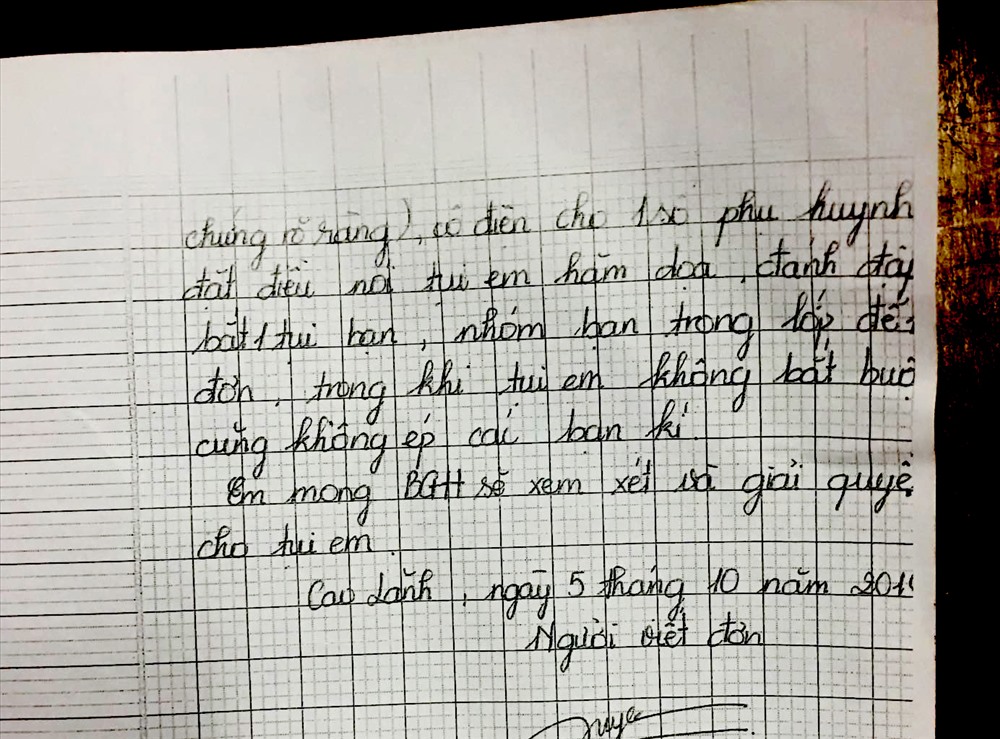 chứng rõ ràng), cô điện cho 1 số phụ huynh
đặt điều nói tụi em hăm dọa, đánh đập
bắt 1 tụi bạn, nhóm bạn trong lớp
đơn, trong khi tụi em không bắt buộ
cũng không ép các bạn kí.
Em mong BGH sẽ xem xét và giải quyế
cho tụi em.
Cao Lãnh, ngày 5 tháng 10 năm 201
Người viết đơn